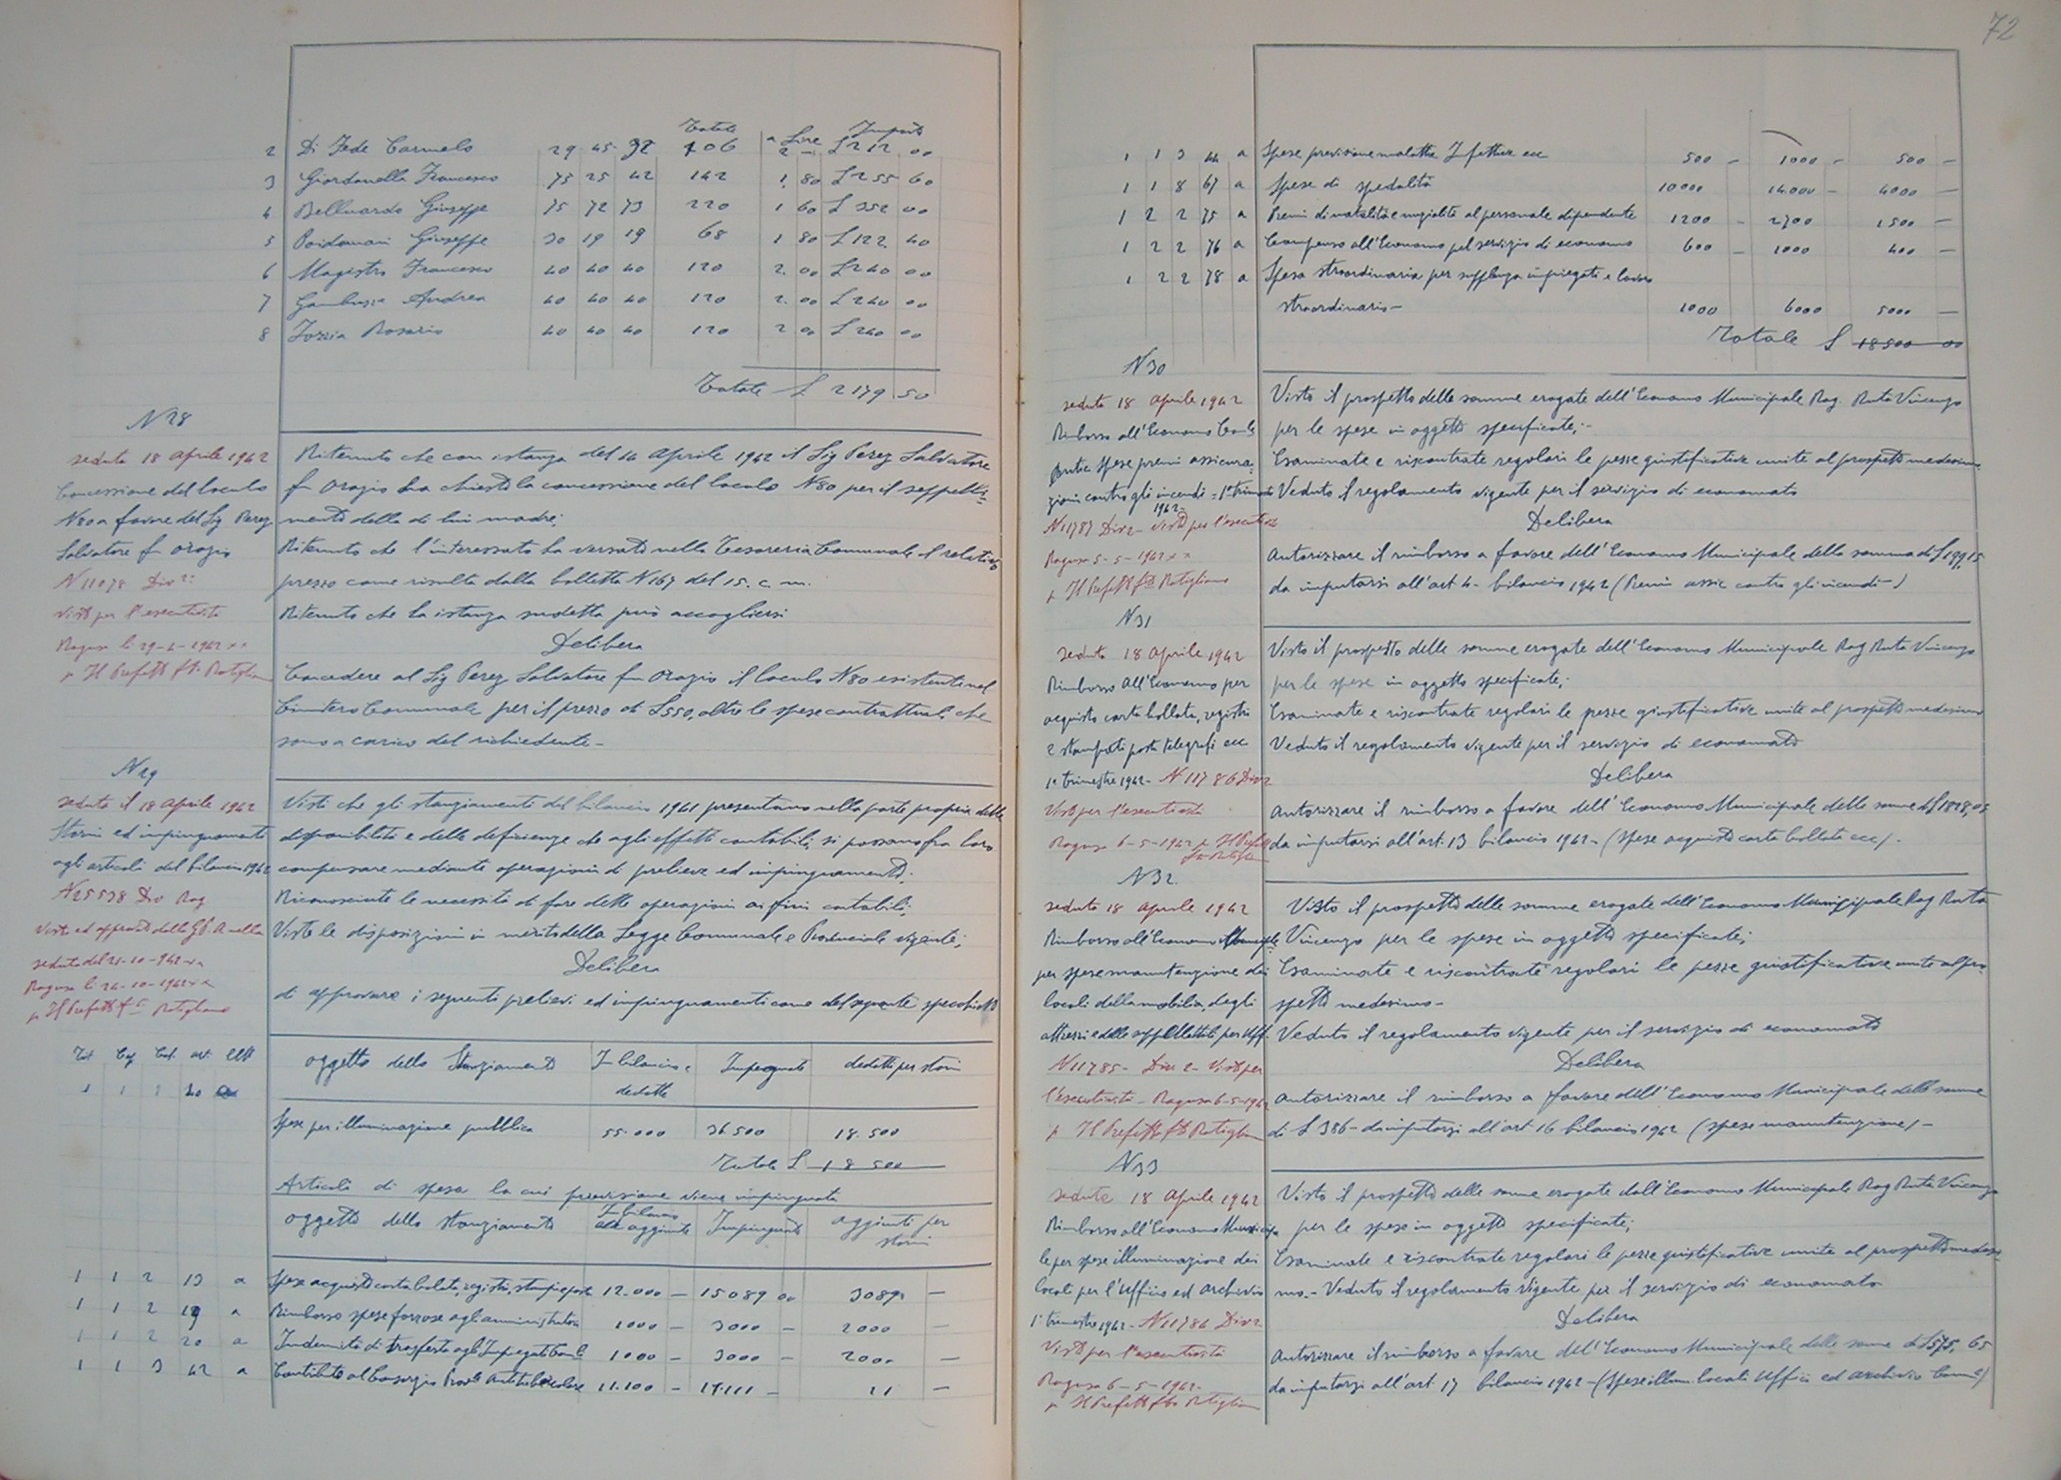 72
Totale a Lire Importo
2 Di Fede Carmelo 29 45 32 106 2 — £ 212 00
3 Giordanella Francesco 75 25 42 142 1. 80 £ 255 60
4 Belluardo Giuseppe 75 72 73 220 1 60 £ 352 00
5 Poidomani Giuseppe 30 19 19 68 1 80 £ 122 40
6 Magistro Francesco 40 40 40 120 2. 00 £ 240 00
7 Gambuzza Andrea 40 40 40 120 2. 00 £ 240 00
8 Rosario 40 40 40 120 2 00 £ 240 00
Totale £ 2179 50
N 28
seduta 18 aprile 1942
Concessione del loculo
N 80 a favore del Sig Perez
Salvatore fu Orazio
N 11078 Div 2ª
Visto per l'esecutività
Ragusa li 29-4-1942 xx
p Il Prefetto fto Ratigliano
Ritenuto che con istanza del 14 aprile 1942 il Sig Perez Salvatore
fu Orazio ha chiesto la concessione del loculo N 80 per il seppelli-
mento della di lui madre;
Ritenuto che l'interessato ha versato nella Tesoreria Comunale il relativo
prezzo come risulta dalla bolletta N 167 del 15. c. m.
Ritenuto che la istanza sudetta può accogliersi
Delibera
Concedere al Sig Perez Salvatore fu Orazio il loculo N 80 esistente nel
Cimitero Comunale per il prezzo di £ 550, oltre le spese contrattuali che
sono a carico del richiedente -
N 29
seduta il 18 aprile 1942
Storni ed impinguamento
agli articoli del bilancio 1942
N 25538 Div Rag
Visto ed approvato dalla G P A nella
seduta del 21-10-942 xx
Ragusa li 24-10-1942 xx
p Il Prefetto fto Ratigliano
Visti che gli stanziamenti del bilancio 1941 presentano nella parte propria delle
disponibilità e delle deficienze che agli effetti contabili, si possono fra loro
compensare mediante operazioni di prelievi ed impinguamento;
Riconosciute le necessità di fare dette operazioni ai fini contabili;
Viste le disposizioni in merito della Legge Comunale e Provinciale vigente;
Delibera
di approvare i seguenti prelievi ed impinguamenti come del seguente specchietto
Tit Cap Cat. art. lett oggetto dello Stanziamento In bilancio e dedotte Impinguati dedotti per storni
1 1 2 40 Spese per illuminazione pubblica 55.000 36.500 18.500
Totale £ 18 500
Articoli di spesa la cui previsione viene impinguata
oggetto dello stanziamento In bilancio aggiunte Impinguati aggiunti per storni
1 1 2 13 a Spese acquisto carta bollata, registri, stampe, poste 12.000 — 15089 00 3089 —
1 1 2 19 a Rimborso spese forzose agli amministratori 1000 — 3000 — 2000 —
1 1 2 20 a Indennità di trasferta agli Impiegati Com.li 1000 — 3000 — 2000 —
1 1 3 42 a Contributo al Consorzio Prov.le Antitubercolare 11.100 — 11.111 — 11 —
1 1 3 44 a Spese prevenzione malattie Infettive ecc 500 — 1000 — 500 —
1 1 8 67 a Spese di spedalità 10000 14.000 — 4000 —
1 2 2 75 a Premi di natalità e nuzialità al personale dipendente 1200 — 2700 1500 —
1 2 2 76 a Compenso all'Economo pel servizio di economo 600 — 1000 400 —
1 2 2 78 a Spesa straordinaria per supplenza impiegati e lavoro
straordinario - 1000 6000 5000 —
Totale £ 18500 00
N 30
seduta 18 aprile 1942
Rimborso all'Economo Com.le
spese premi assicura-
zioni contro gli incendi = 1º trimestre
1942 -
N 11787 Div 2 - Visto per l'esecutività
Ragusa 5-5-1942 xx
p Il Prefetto fto Ratigliano
Visto il prospetto delle somme erogate dell'Economo Municipale Rag. Ruta Vincenzo
per le spese in oggetto specificate; -
Esaminate e riscontrate regolari le pezze giustificative unite al prospetto medesimo
Veduto il regolamento vigente per il servizio di economato
Delibera
autorizzare il rimborso a favore dell'Economo Municipale della somma di £ 197,15
da imputarsi all'art 4 - bilancio 1942 (Premi assic contro gli incendi -)
N 31
seduta 18 aprile 1942
Rimborso all'Economo per
acquisto carta bollata, registri
e stampati posta telegrafi ecc
1º trimestre 1942 - N 11786 Div 2
Visto per l'esecutività
Ragusa 6-5-1942 p Il Prefetto
fto Ratigliano
Visto il prospetto delle somme erogate dell'Economo Municipale Rag Ruta Vincenzo
per le spese in oggetto specificate;
Esaminate e riscontrate regolari le pezze giustificative unite al prospetto medesimo
Veduto il regolamento vigente per il servizio di economato
Delibera
autorizzare il rimborso a favore dell'Economo Municipale delle somme di £ 1818,05
da imputarsi all'art. 13 bilancio 1942 - (spese acquisto carta bollata ecc) -
N 32
seduta 18 aprile 1942
Rimborso all'Economo Municipale
per spese manutenzione dei
locali della mobilia, degli
attrezzi e delle suppellettili per Uff.
N 11785 - Div 2 - Visto per
l'esecutività - Ragusa 6-5-1942
p Il Prefetto fto Ratigliano
Visto il prospetto delle somme erogate dell'Economo Municipale Rag Ruta
Vincenzo per le spese in oggetto specificate;
Esaminate e riscontrate regolari le pezze giustificative unite al pro-
spetto medesimo -
Veduto il regolamento vigente per il servizio di economato
Delibera
autorizzare il rimborso a favore dell'Economo Municipale delle somme
di £ 386 - da imputarsi all'art 16 bilancio 1942 (spese manutenzione) -
N 33
seduta 18 aprile 1942
Rimborso all'Economo Municipa
le per spese illuminazione dei
locali per l'Ufficio ed archivio
1º trimestre 1942 - N 11784 Div 2
Visto per l'esecutività
Ragusa 6-5-1942 -
p Il Prefetto fto Ratigliano
Visto il prospetto delle somme erogate dall'Economo Municipale Rag Ruta Vincenzo
per le spese in oggetto specificate;
Esaminate e riscontrate regolari le pezze giustificative unite al prospetto medesi
mo. - Veduto il regolamento vigente per il servizio di economato
Delibera
autorizzare il rimborso a favore dell'Economo Municipale delle somme di £ 575,65
da imputarsi all'art. 17 bilancio 1942 - (spese illum. locali Uffici ed archivio Com.le)